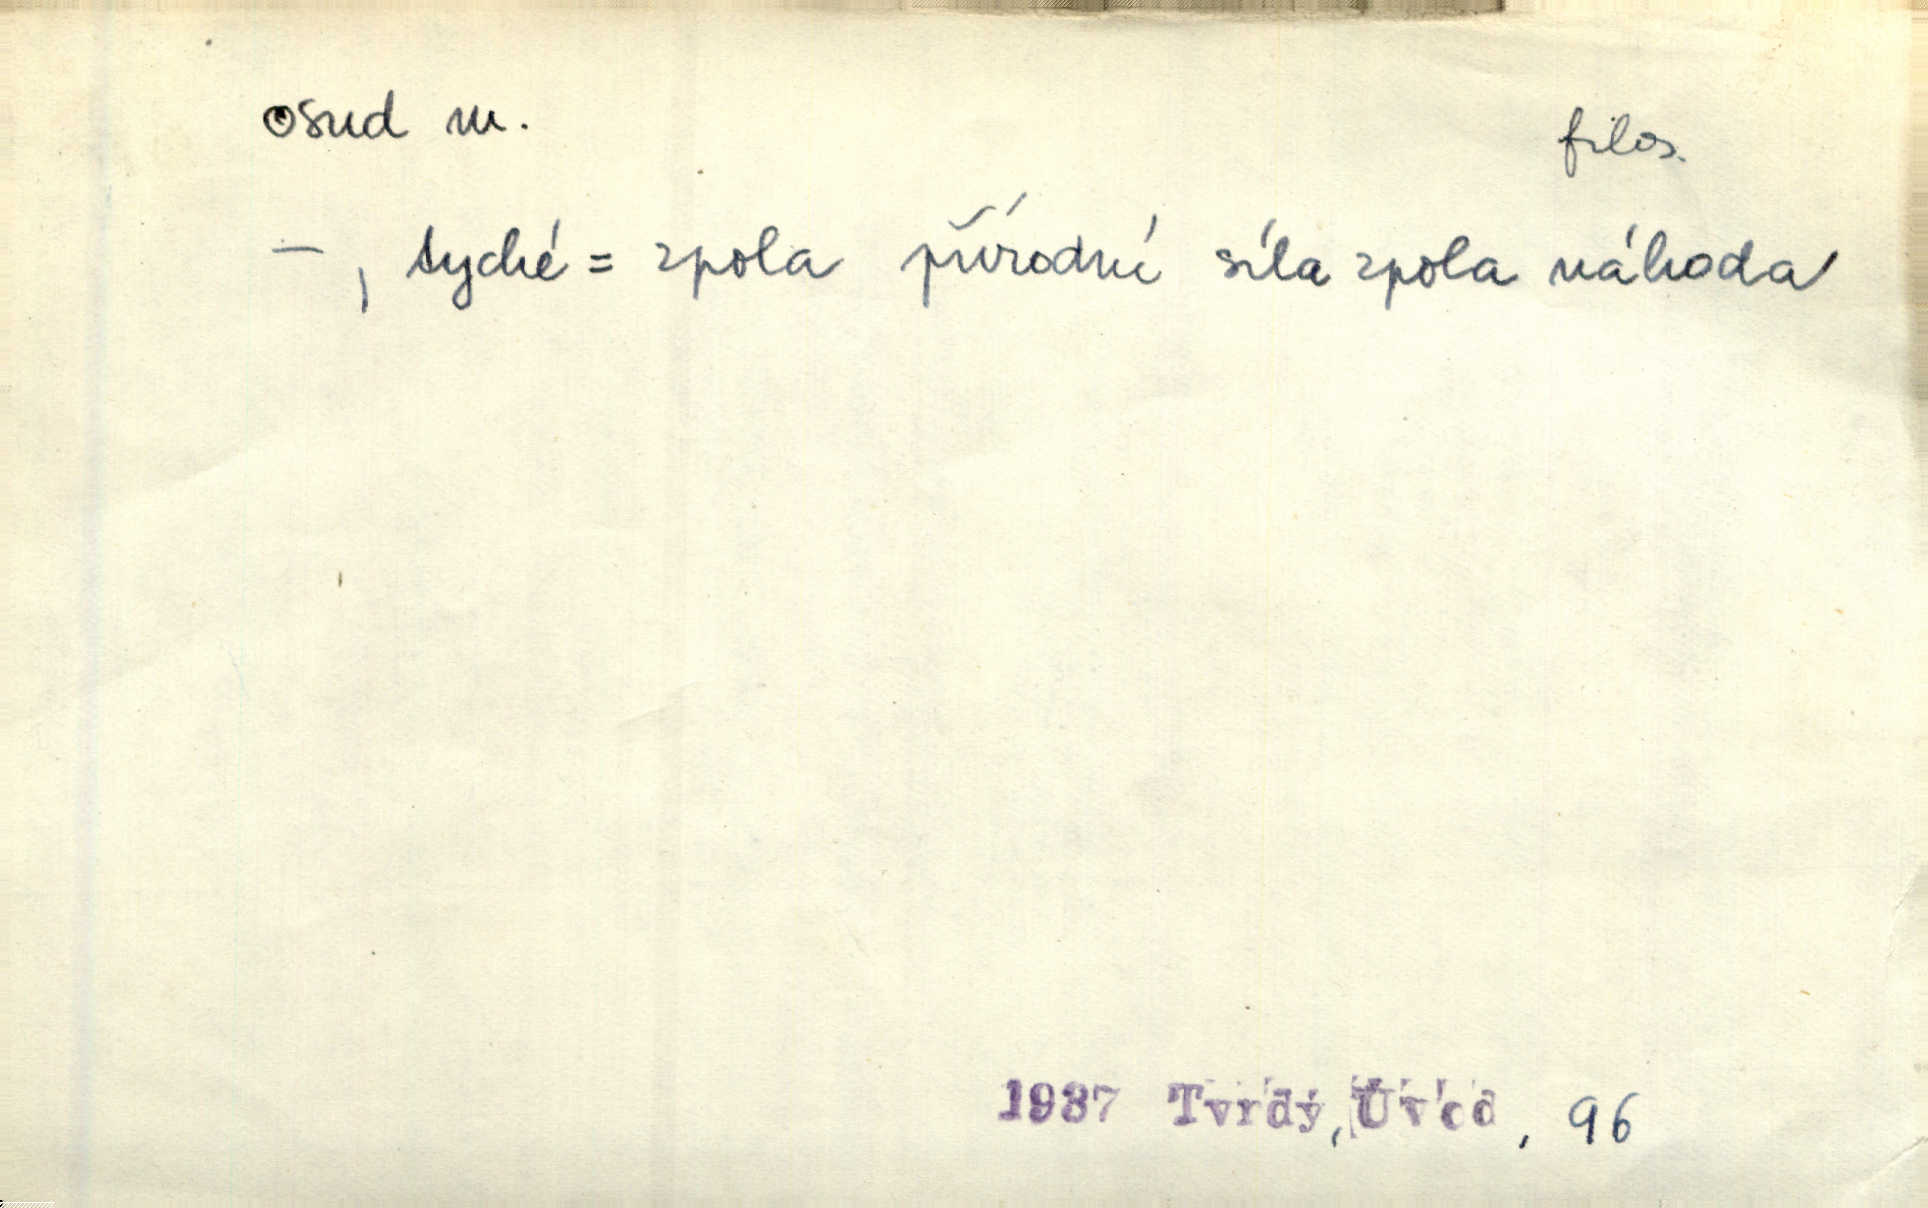 osud m.
filos.
— , tyché = zpola přírodní síla zpola náhoda
1937 Tvrdý, Úvod, 96